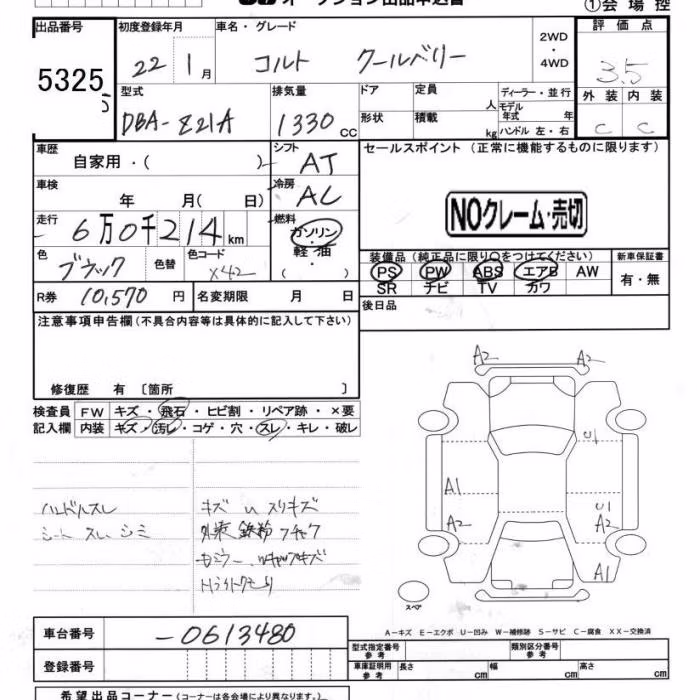 オークション出品申込書
①会場控
出品番号 初度登録年月 車名・グレード 評価点
5325 22 1月 コルト クールベリー 2WD・4WD 3.5
型式 排気量 ドア 定員 人 ディーラー・並行 外装 内装
DBA-Z21A 1330cc 形状 積載 kg モデル年式 年 C C
ハンドル 左・右
車歴 シフト セールスポイント(正常に機能するものに限ります)
自家用・( ) AT
車検 冷房
年 月( 日) AC
NOクレーム・売切
走行 燃料
6万0千214km ガソリン・軽油・( )
色 色替 色コード 装備品(純正品に限り○をつけてください) 新車保証書
ブラック X42 PS PW ABS エアB AW 有・無
SR ナビ TV カワ
R券 10,570円 名変期限 月 日
後日品
注意事項申告欄(不具合内容等は具体的に記入して下さい)
修復歴 有 〔箇所 〕
検査員 FW キズ・飛石・ヒビ割・リペア跡・×要
記入欄 内装 キズ・汚レ・コゲ・穴・スレ・キレ・破レ
A2 A2
U1
A1 U1
A2 A2
A1
ハンドルスレ キズ
シート スレ シミ 外装 鉄粉
スペア
A-キズ E-エクボ U-凹み W-補修跡 S-サビ C-腐食 XX-交換済
車台番号 -0613480
型式指定番号 参考 類別区分番号 参考
登録番号 車庫証明用 参考 長さ cm 幅 cm 高さ cm
希望出品コーナー(コーナーは各会場により異なります。)